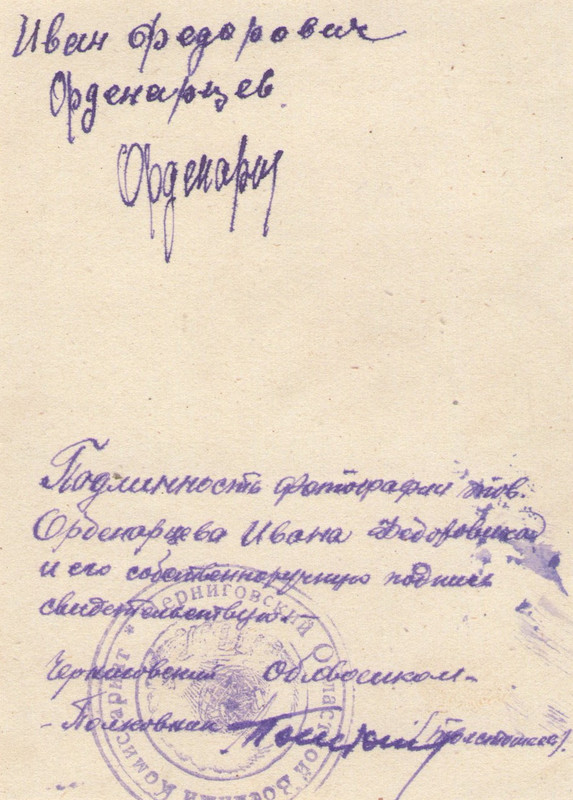 Иван Федорович
Орденарцев
Орденарц
Подлинность фотографии тов.
Орденарцева Ивана Федоровича
и его собственноручную подпись
свидетельствую.
Черниговский Облвоенком-
-Полковник
* Черниговский Областной Военный Комиссариат